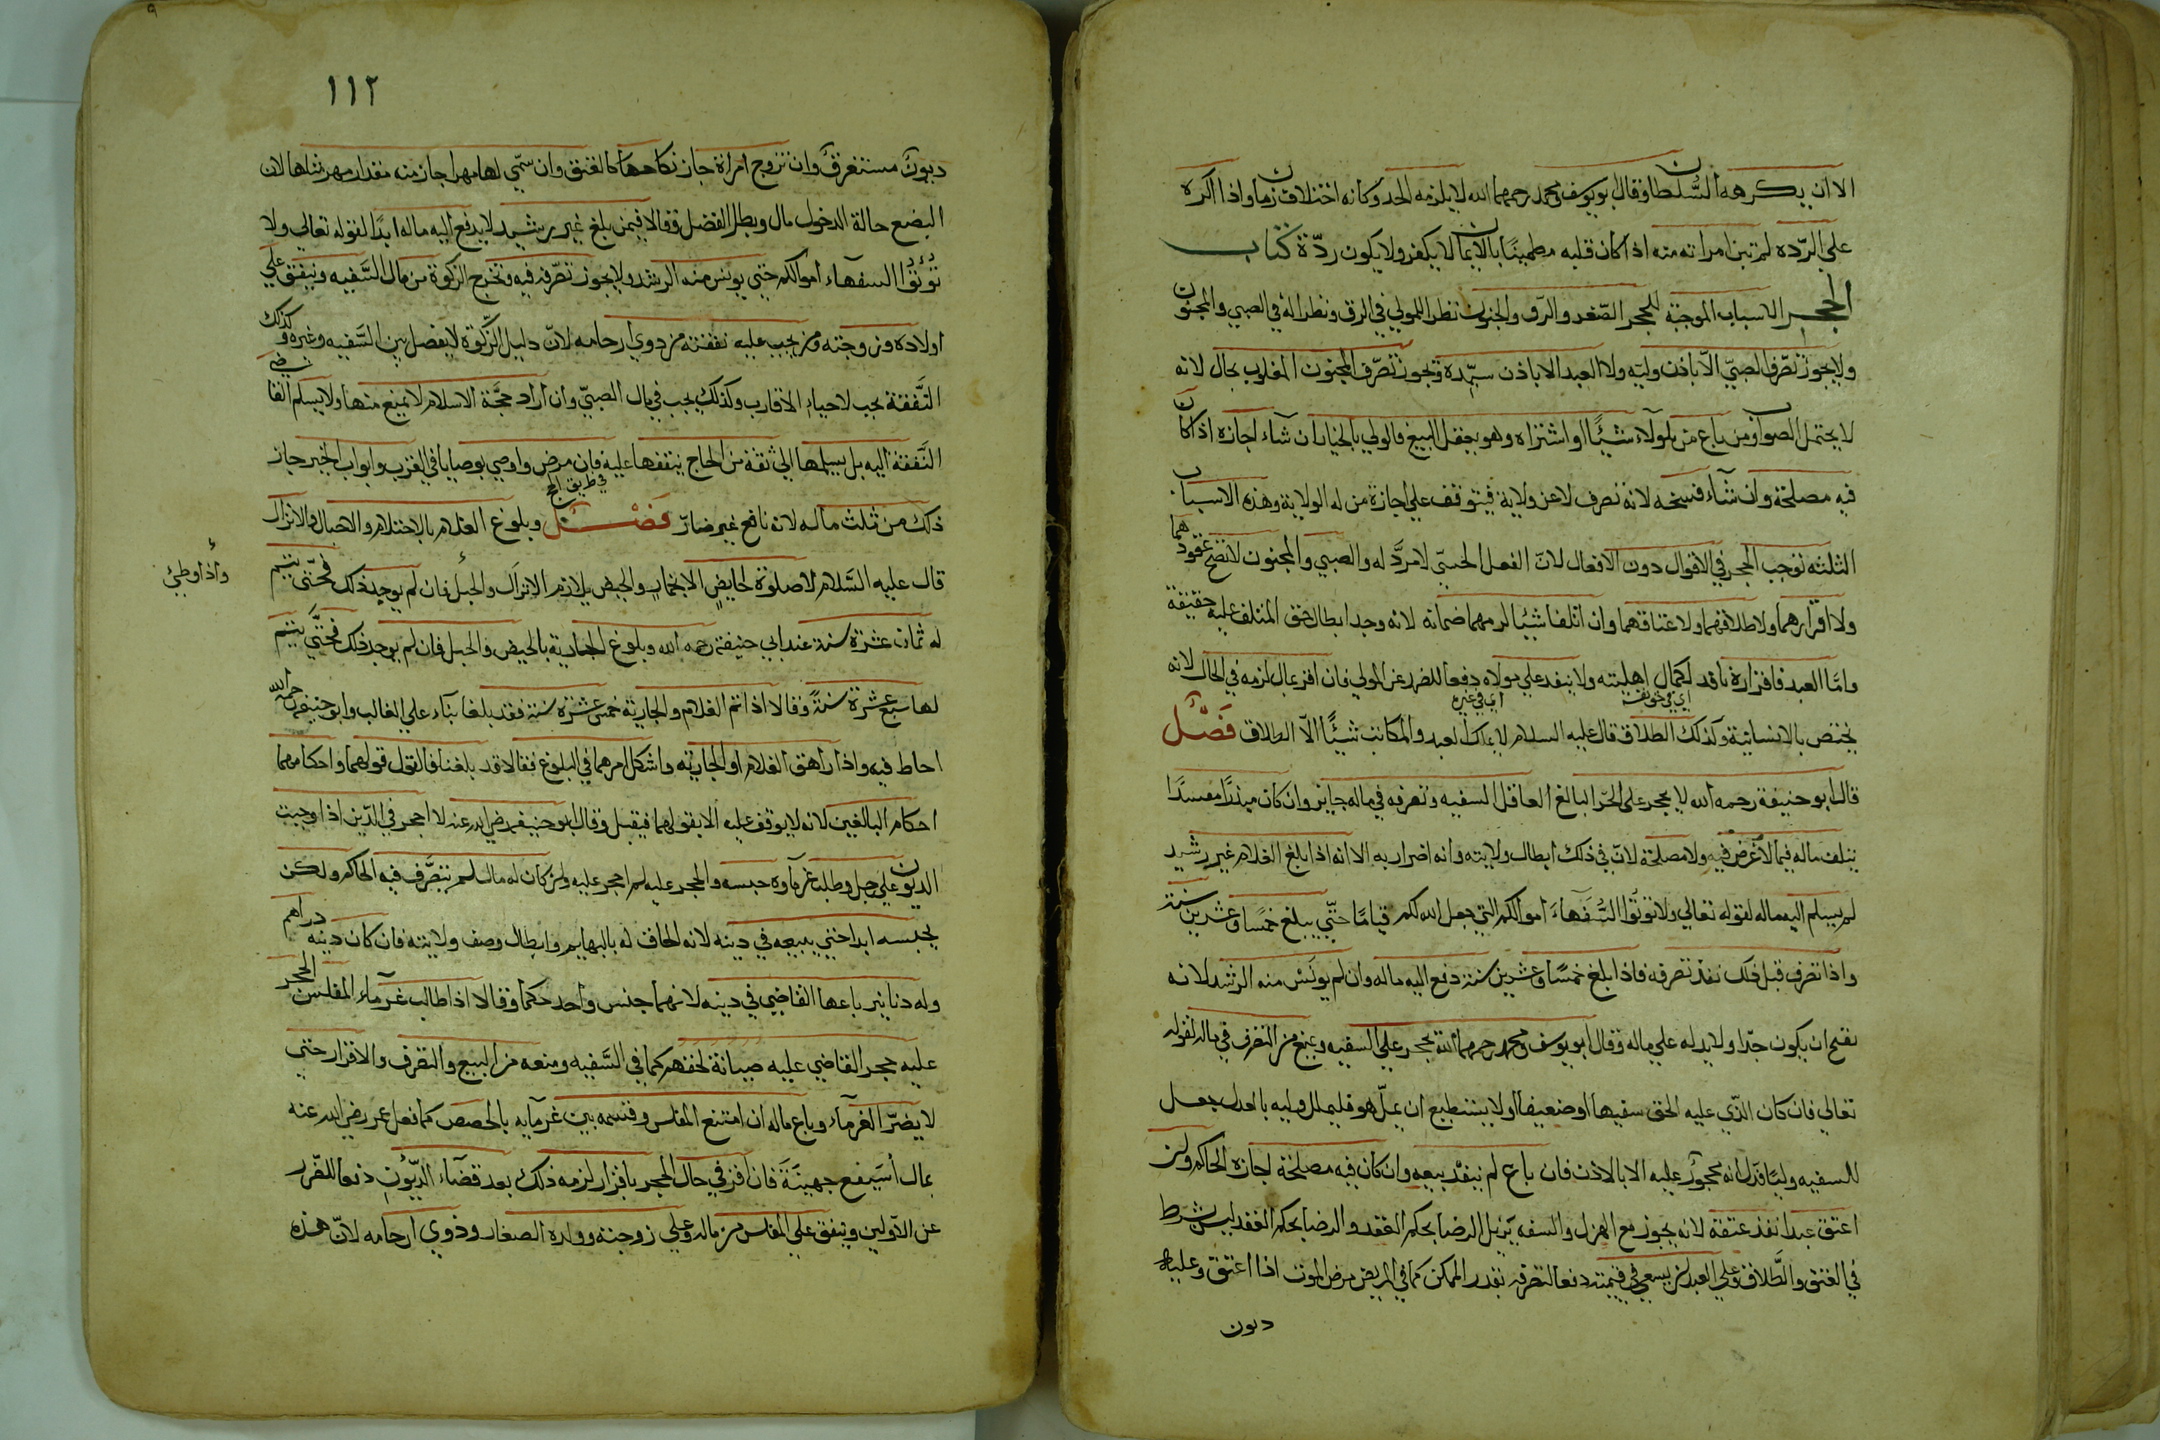 الا ان يكرهه السلطان وقال ابو يوسف ومحمد رحمهما الله لا يلزمه الحد وكانه اختلاف زمان واذا اكره
علي الردّه لم تبن امراته منه اذا كان قلبه مطمينا بالايمان لا يكفر ولا يكون ردّة كتاب
الحجر الاسباب الموجبة للحجر الصغر والرق والجنون نظرا للمولي في الرق ونظرا له في الصبي والمجنون
ولا يجوز تصرف الصبيّ الّا باذن وليّه ولا العبد الا باذن سيّده ولا يجوز تصرّف المجنون المغلوب بحال لانه
لا يحتمل الصواب ومن باع من هولآء شيئًا او اشتراه وهو يعقل البيع فالولي بالخيار ان شاء اجازه اذا كان
فيه مصلحة وان شآء فسخه لانه تصرف لا عن ولاية فيتوقف علي اجازة من له الولاية وهذه الاسباب
الثلثة توجب الحجر في الاقوال دون الافعال لانّ الفعل الحسّي لا مردّ له والصبي والمجنون لا تصح عقودهما
ولا اقرارهما ولا طلاقهما ولا عتاقهما وان اتلفا شيئا لزمهما ضمانه لانه وجد ابطال حق المتلف عليه حقيقة
وامّا العبد فاقراره نافد لكمال اهليته ولا ينفد علي مولاه دفعا للضرر عن المولي فان اقر بمال لزمه في الحال لانه
اي في حق نفسه اي في غيره
يختص بالانسانية وكذلك الطلاق قال عليه السلام لا يملك العبد والمكاتب شيئًا الّا الطلاق فصل
قال ابو حنيفة رحمه الله لا يحجر علي الحرّ البالغ العاقل السفيه وتصرفه في ماله جايز وان كان مبذرًا مفسدًا
يتلف ماله فيما لا غرض فيه ولا مصلحة لانّ في ذلك ابطال ولايته وانه اضرار به الا انه اذا بلغ الغلام غير رشيد
لم يسلم اليه ماله لقوله تعالي ولا توتوا السُّفهاءَ اموالكم التي جعل الله لكم قيامًا حتّي يبلغ خمسًا وعشرين سنة
واذا تصرف قبل ذلك نفذ تصرفه فاذا بلغ خمسًا وعشرين سنة دفع اليه ماله وان لم يونس منه الرشد لانه
يقبح ان يكون جدّا ولا يد له علي ماله وقال ابو يوسف ومحمد رحمهما الله يحجر علي السفيه ويمنع من التصرف في ماله لقوله
تعالي فان كان الذّي عليه الحق سفيها او ضعيفا او لا يستطيع ان يملّ هو فليملل وليه بالعدل جعل
للسفيه وليّا فدل انه محجور عليه الا بالاذن فان باع لم ينفذ بيعه وان كان فيه مصلحة اجازه الحاكم وان
اعتق عبدا نفذ عتقه لانه يجوز مع الهزل والسفه يزيل الرضا بحكم العقد والرضا بحكم العقد ليس بشرط
في العتق والطّلاق وعلي العبد ان يسعي في قيمته دفعا لتصرفه بقدر الممكن كما في المريض مرض الموت اذا اعتق وعليه
ديون
١١٢
ديون مستغرقة وان تزوج امراة جاز نكاحها كالعتق وان سمّي لها مهرا جاز منه مقدار مهر مثلها لان
البضع حالة الدخول مال وبطل الفضل وقالا فيمن بلغ غير رشيد لا يدفع اليه ماله ابدًا لقوله تعالي ولا
تُوتُوا السفهاء اموالكم حتي يونس منه الرشد ولا يجوز تصرّفه فيه وتخرج الزكوة من مال السَّفيه وينفق علي
اولاده وزوجته ومن يجب عليه نفقته من ذوي ارحامه لانّ دليل الزّكوة لا يفصل بين السَّفيه وغيره وكذلك
النَّفقة يجب لاحياء الاقارب وكذلك يجب في مال الصبيّ وان اراد حجّة الاسلام لا يمنع منها ولا يسلم القاضي
النَّفقة اليه بل يسلمها الي ثقة من الحاج ينفقها عليه فان مرض واوصي بوصايا في القرب وابواب الخير جاز
في طريق الحج
ذلك من ثلث ماله لانه نافع غير ضارّ فصل وبلوغ الغلام بالاحتلام والاحبال والانزال
واذا وطئ
قال عليه السَّلام لا صلوة لحايضٍ الا بخمار والحيض يلازم الانزال والحبل فان لم يوجد ذلك فحتّي يتم
له ثمان عشرة سنة عند ابي حنيفة رحمه الله وبلوغ الجارية بالحيض والحبل فان لم يوجد ذلك فحتّي يتم
لها سبع عشرة سنةً وقالا اذا اتم الغلام والجارية خمس عشرة سنة فقد بلغا بنآء علي الغالب وابو حنيفة رحمه الله
احاط فيه واذا راهق الغلام او الجارية واشكل امرهما في البلوغ فقالا قد بلغنا فالقول قولهما واحكامهما
احكام البالغين لانه لا يوقف عليه الا بقولهما فيقبل وقال ابو حنيفة رضي الله عنه لا احجر في الدّين اذا وجبت
الديون علي رجل وطلب غرمآوه حبسه والحجر عليه لم احجر عليه وان كان له مال لم يتصّرف فيه الحاكم ولكن
يحبسه ابدا حتي يبيعه في دينه لانه الحاق له بالبهايم وابطال وصف ولايته فان كان دينه دراهم
وله دنانير باعها القاضي في دينه لانهما جنس واحد حكما وقالا اذا طالب غرمآء المفلس الحجر
عليه حجر القاضي عليه صيانة لحقهم كما في السَّفيه ومنعه من البيع والتصرف والاقرار حتي
لا يضرّ الغرمآء وباع ماله ان امتنع المفلس وقسمه بين غرمآيه بالحصص كما فعل عمر رضي الله عنه
بمال أسَيفع جهينَة فان اقر في حال الحجر باقرار لزمه ذلك بعد قضآء الدّيُون دفعا للضّرر
عن الاولين وينفق علي المفلس من ماله وعلي زوجته وولده الصغار وذوي ارحامه لانّ هذه